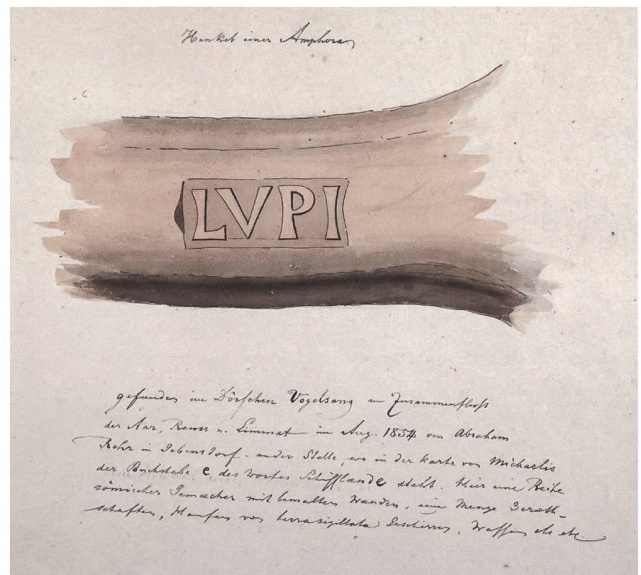 Henkel einer Amphora
LVPI
gefunden im Dörfchen Vogelsang am Zusammenfluss
der Aar, Reuss u. Limmat im Aug. 1854 von Abraham
Rohr in Gebensdorf - an der Stelle, wo in der Karte von Michaelis
der Buchstabe e des Wortes Schifflände steht. Hier eine Reihe
römischer Gemaecher mit bemalten Wanden, eine Menge Geräth-
schaften, Haufen von terra sigillata Geschirren, Waffen etc etc.